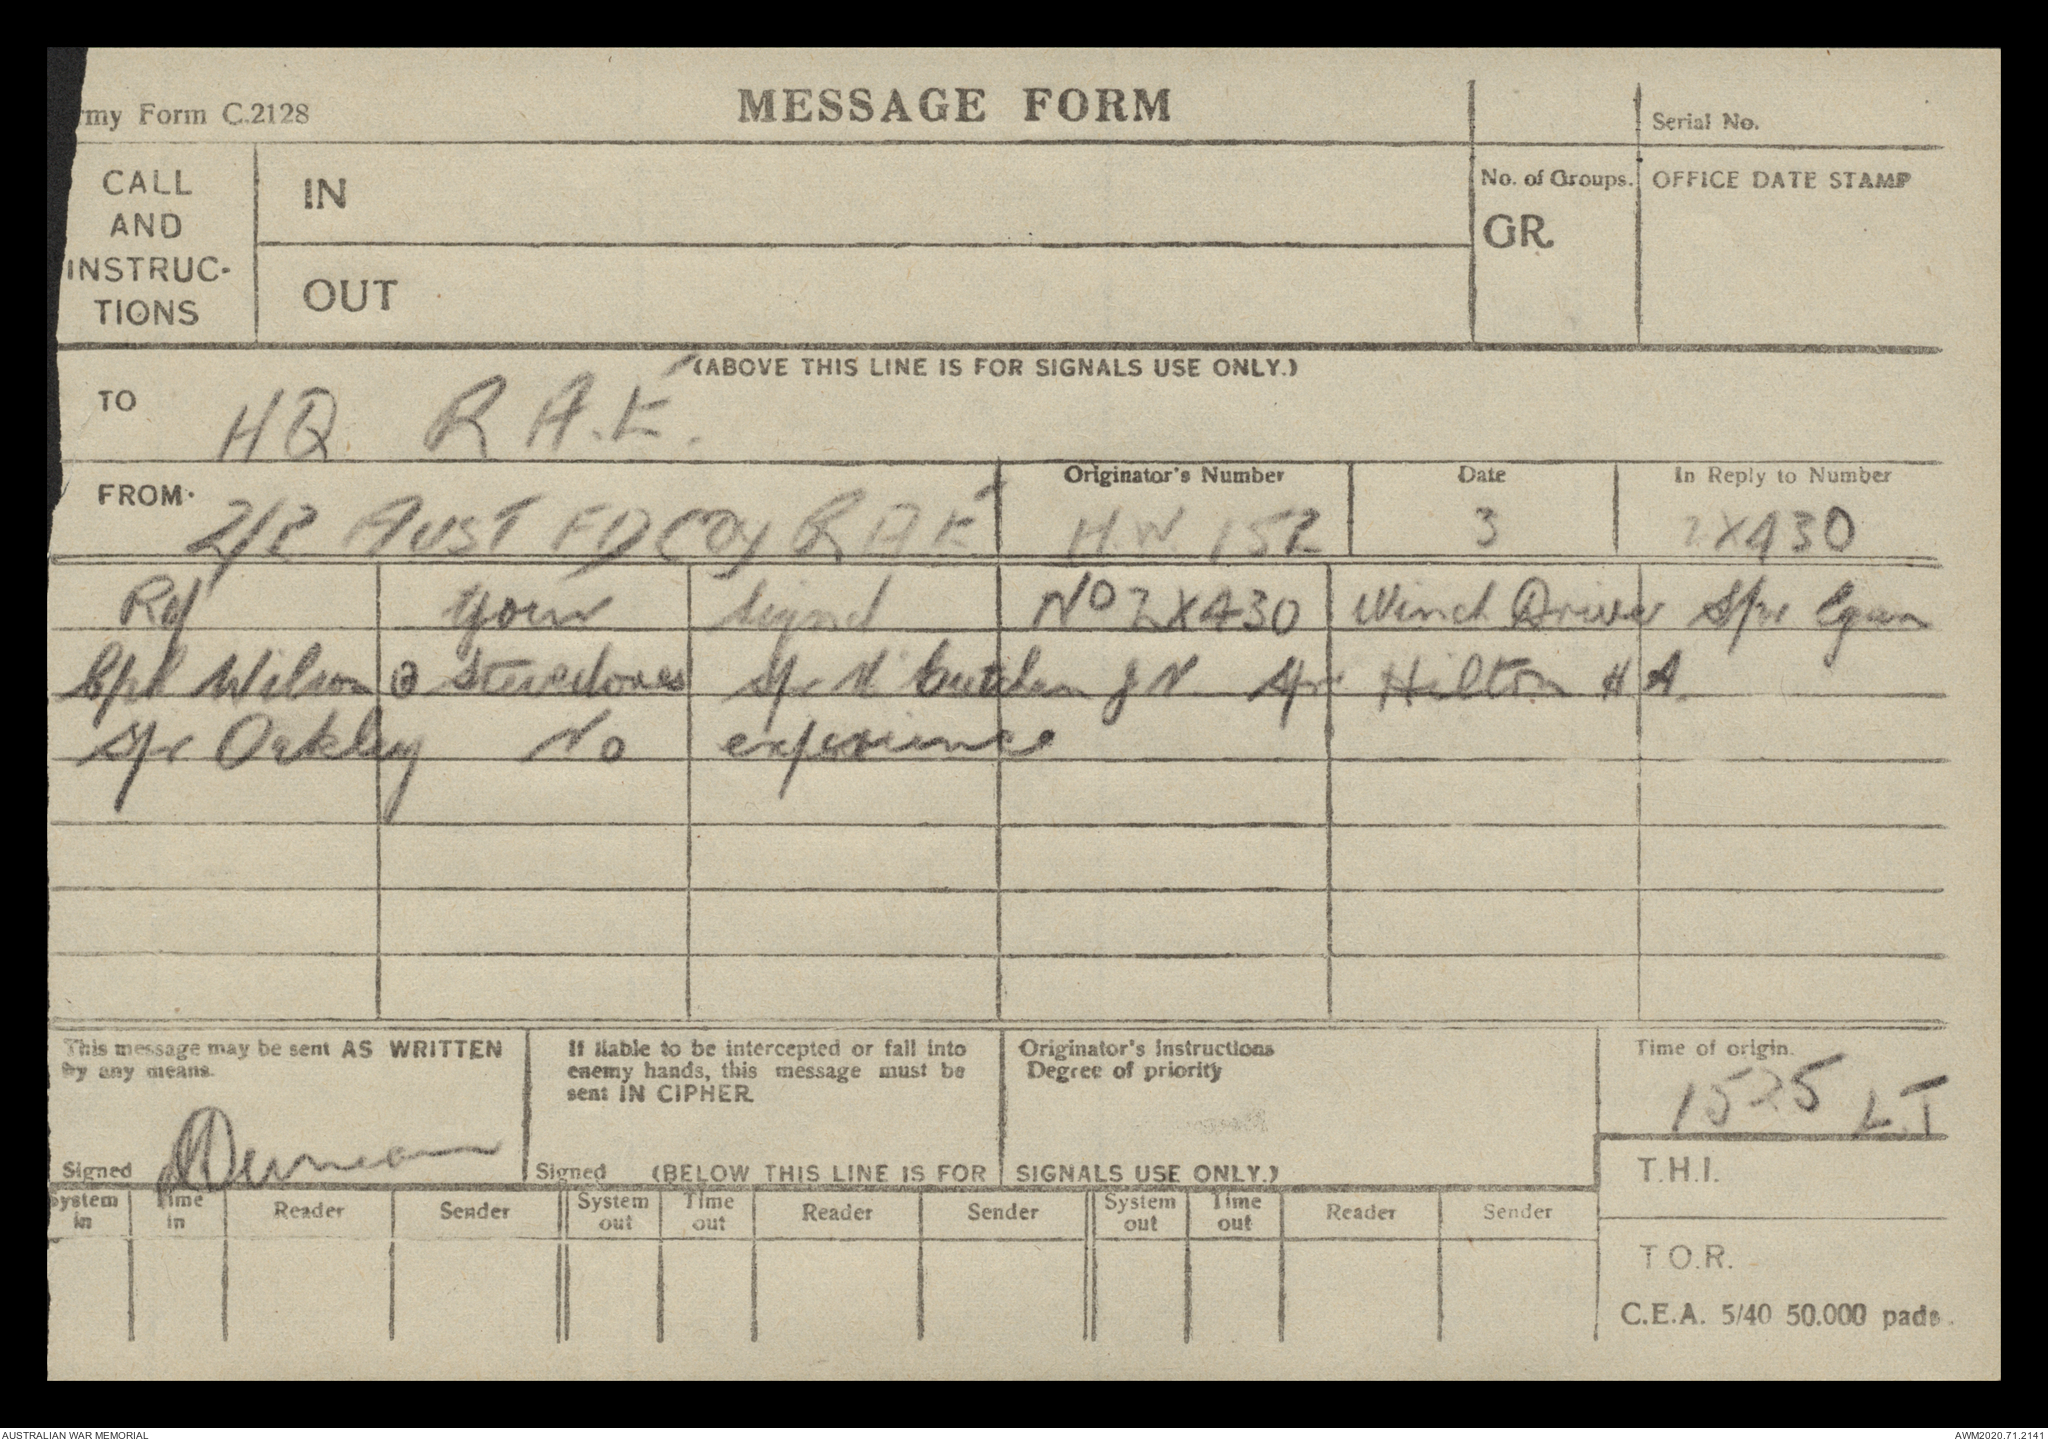 rmy Form C.2128
MESSAGE FORM
Serial No.
CALL
AND
INSTRUC-
TIONS
IN
OUT
No. of Groups.
GR.
OFFICE DATE STAMP
(ABOVE THIS LINE IS FOR SIGNALS USE ONLY.)
TO HQ R.A.E.
FROM 2/2 AUST FD COY RAE
Originator's Number
H.W. 152
Date
3
In Reply to Number
ZX430
Ref your signal No ZX430 Winch Driver Spr Egan
Cpl Wilson Stevedores Spr Mc Cutchan J N Spr Hilton H A.
Spr Oakley No experience
This message may be sent AS WRITTEN
by any means.
Signed
If liable to be intercepted or fall into
enemy hands, this message must be
sent IN CIPHER.
Signed
(BELOW THIS LINE IS FOR SIGNALS USE ONLY.)
Originator's Instructions
Degree of priority
Time of origin.
1525 L.T
T.H.I.
System in
Time in
Reader
Sender
System out
Time out
Reader
Sender
System out
Time out
Reader
Sender
T.O.R.
C.E.A. 5/40 50.000 pads.
AUSTRALIAN WAR MEMORIAL
AWM2020.71.2141